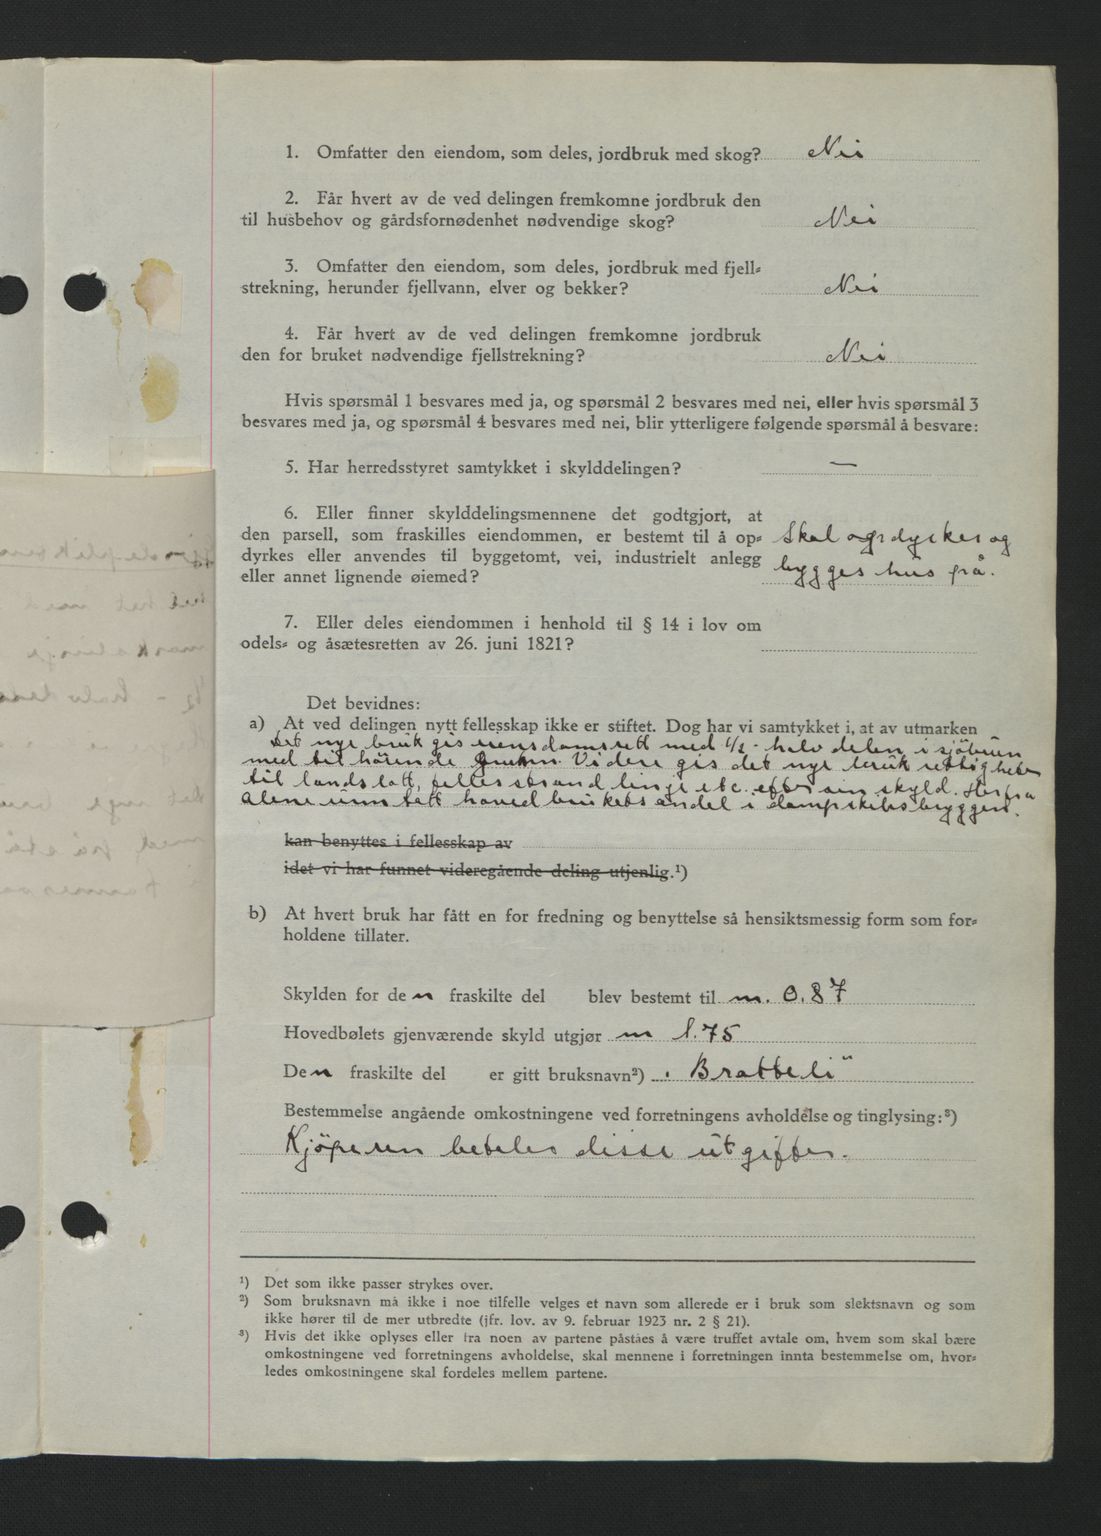 1. Omfatter den eiendom, som deles, jordbruk med skog? Nei
2. Får hvert av de ved delingen fremkomne jordbruk den
til husbehov og gårdsfornødenhet nødvendige skog? Nei
3. Omfatter den eiendom, som deles, jordbruk med fjell=
strekning, herunder fjellvann, elver og bekker? Nei
4. Får hvert av de ved delingen fremkomne jordbruk
den for bruket nødvendige fjellstrekning? Nei
Hvis spørsmål 1 besvares med ja, og spørsmål 2 besvares med nei, eller hvis spørsmål 3
besvares med ja, og spørsmål 4 besvares med nei, blir ytterligere følgende spørsmål å besvare:
5. Har herredsstyret samtykket i skylddelingen? —
6. Eller finner skylddelingsmennene det godtgjort, at
den parsell, som fraskilles eiendommen, er bestemt til å op=
dyrkes eller anvendes til byggetomt, vei, industrielt anlegg
eller annet lignende øiemed?
Skal opdyrkes og
bygges hus på.
7. Eller deles eiendommen i henhold til § 14 i lov om
odels= og åsætesretten av 26. juni 1821?
Det bevidnes:
a) At ved delingen nytt fellesskap ikke er stiftet. Dog har vi samtykket i, at av utmarken
Det nye bruk gis eiendomsrett med 1/2 - halvdelen i sjöbuen
med tilhörende grunn. Videre gis det nye bruk rettigheter
til landslott, felles strandlinje etc. efter sin skyld. Herfra
alene unntatt hovedbrukets andel i dampskibsbryggen.
kan benyttes i fellesskap av
idet vi har funnet videregående deling utjenlig.¹)
b) At hvert bruk har fått en for fredning og benyttelse så hensiktsmessig form som for=
holdene tillater.
Skylden for den fraskilte del blev bestemt til m. 0.87
Hovedbølets gjenværende skyld utgjør m 1.75
Den fraskilte del er gitt bruksnavn²) „Bratteli"
Bestemmelse angående omkostningene ved forretningens avholdelse og tinglysing:³)
Kjöperen betaler disse utgifter.
¹) Det som ikke passer strykes over.
²) Som bruksnavn må ikke i noe tilfelle velges et navn som allerede er i bruk som slektsnavn og som
ikke hører til de mer utbredte (jfr. lov. av 9. februar 1923 nr. 2 § 21).
³) Hvis det ikke oplyses eller fra noen av partene påståes å være truffet avtale om, hvem som skal bære
omkostningene ved forretningens avholdelse, skal mennene i forretningen innta bestemmelse om, hvor=
ledes omkostningene skal fordeles mellem partene.